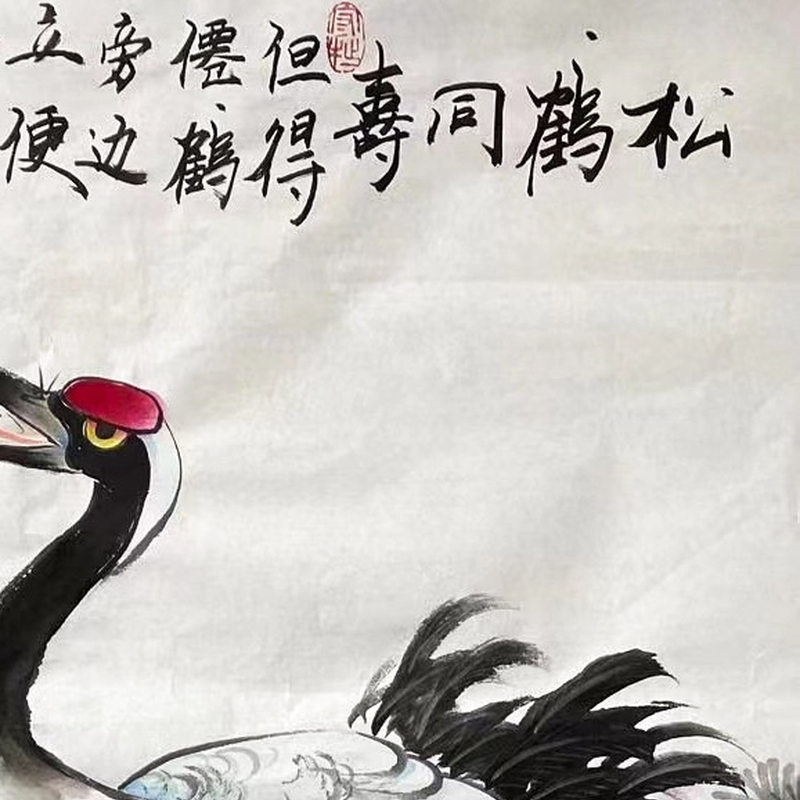 松鶴同壽
但得
僊鶴
旁边
立便